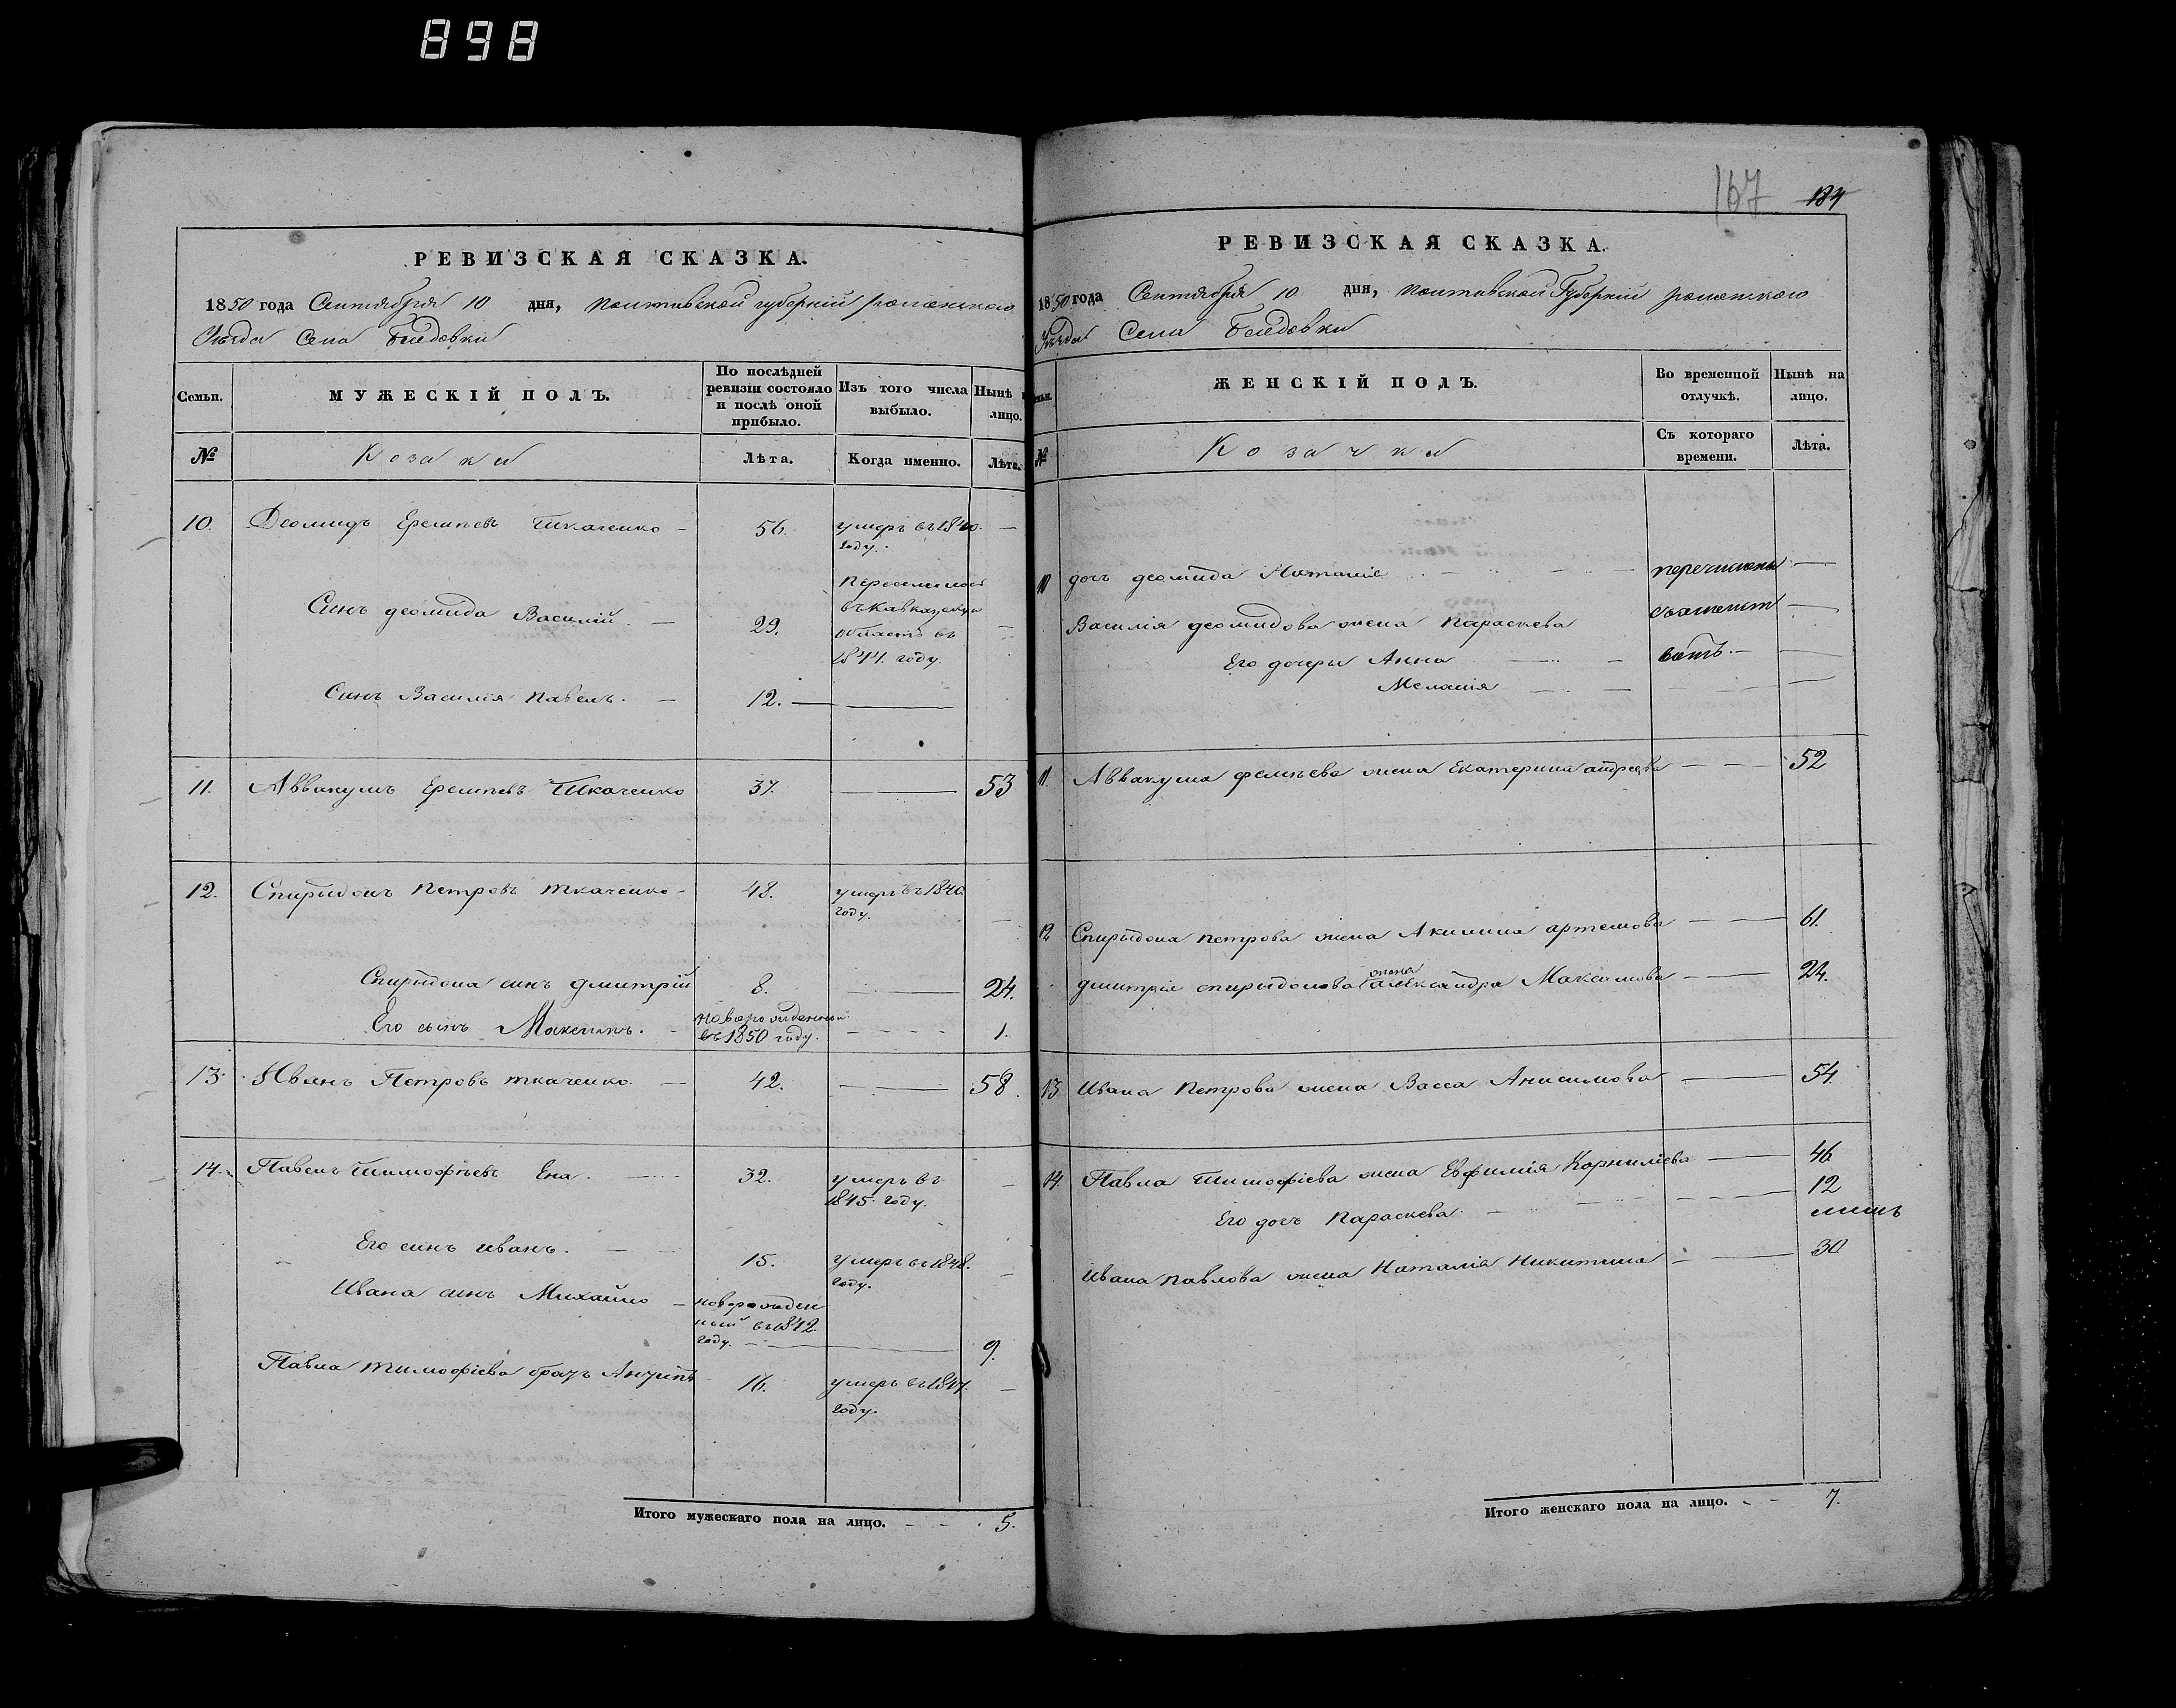 898
РЕВИЗСКАЯ СКАЗКА.
1850 года Сентября 10 дня, Полтавской губерніи роменского
Уѣзда Села Беседовки
Семьи. МУЖЕСКІЙ ПОЛЪ. По послѣдней ревизіи состояло и послѣ оной прибыло. Изъ того числа выбыло. Нынѣ лицо.
№ Козаки Лѣта. Когда именно. Лѣта.
10. Деомидъ Ермиевъ Ткаченко 56. умеръ въ 1840. году. —
Синъ деомида Василій. — 29. Переселился въ Кавказскую область въ 1844. году. —
Синъ Василія Павелъ. — 12. —
11. Аввакумъ Ткаченко 37. — 53
12. Спирыдонъ Петровъ ткаченко - 48. умеръ въ 1840. году. —
Спирыдона синъ дмитрій 8. — 24.
Его сынъ Максимъ. - новорожденный въ 1850 году. — 1.
13. Иванъ Петровъ ткаченко. — 42. — 58.
14. Павелъ Тимофѣевъ Ена. — 32. умеръ въ 1845. году. —
Его синъ иванъ. — 15. умеръ въ 1848. году. —
Ивана синъ Михайло — новорожденный въ 1842. году. — 9.
Павла тимофіева братъ 16. умеръ въ 1847. году. —
Итого мужескаго пола на лицо. — 5.
167 184
РЕВИЗСКАЯ СКАЗКА.
1850 года Сентября 10 дня, Полтавской Губерніи роменского
Уѣзда Села Беседовки
ЖЕНСКІЙ ПОЛЪ. Во временной отлучкѣ. Нынѣ на лицо.
№ Козачки Съ котораго времени. Лѣта.
10 дочъ деомида — перечислены —
Василія деомидова жена Параскева —
Его дочеры Анна —
Меланія —
11. Аввакума жена Екатерина андреева — 52
12 Спирыдона петрова жена Акилина артемова — 61.
дмитрія спирыдонова жена александра Максимова — 24.
13 Ивана Петрова жена Васса Анисимова — 54.
14. Павла Тимофіева жена Евфимія Корниліева — 46
Его дочъ Параскева. — 12 лишъ
Ивана павлова жена Наталія Никитина — 30
Итого женскаго пола на лицо. — 7.